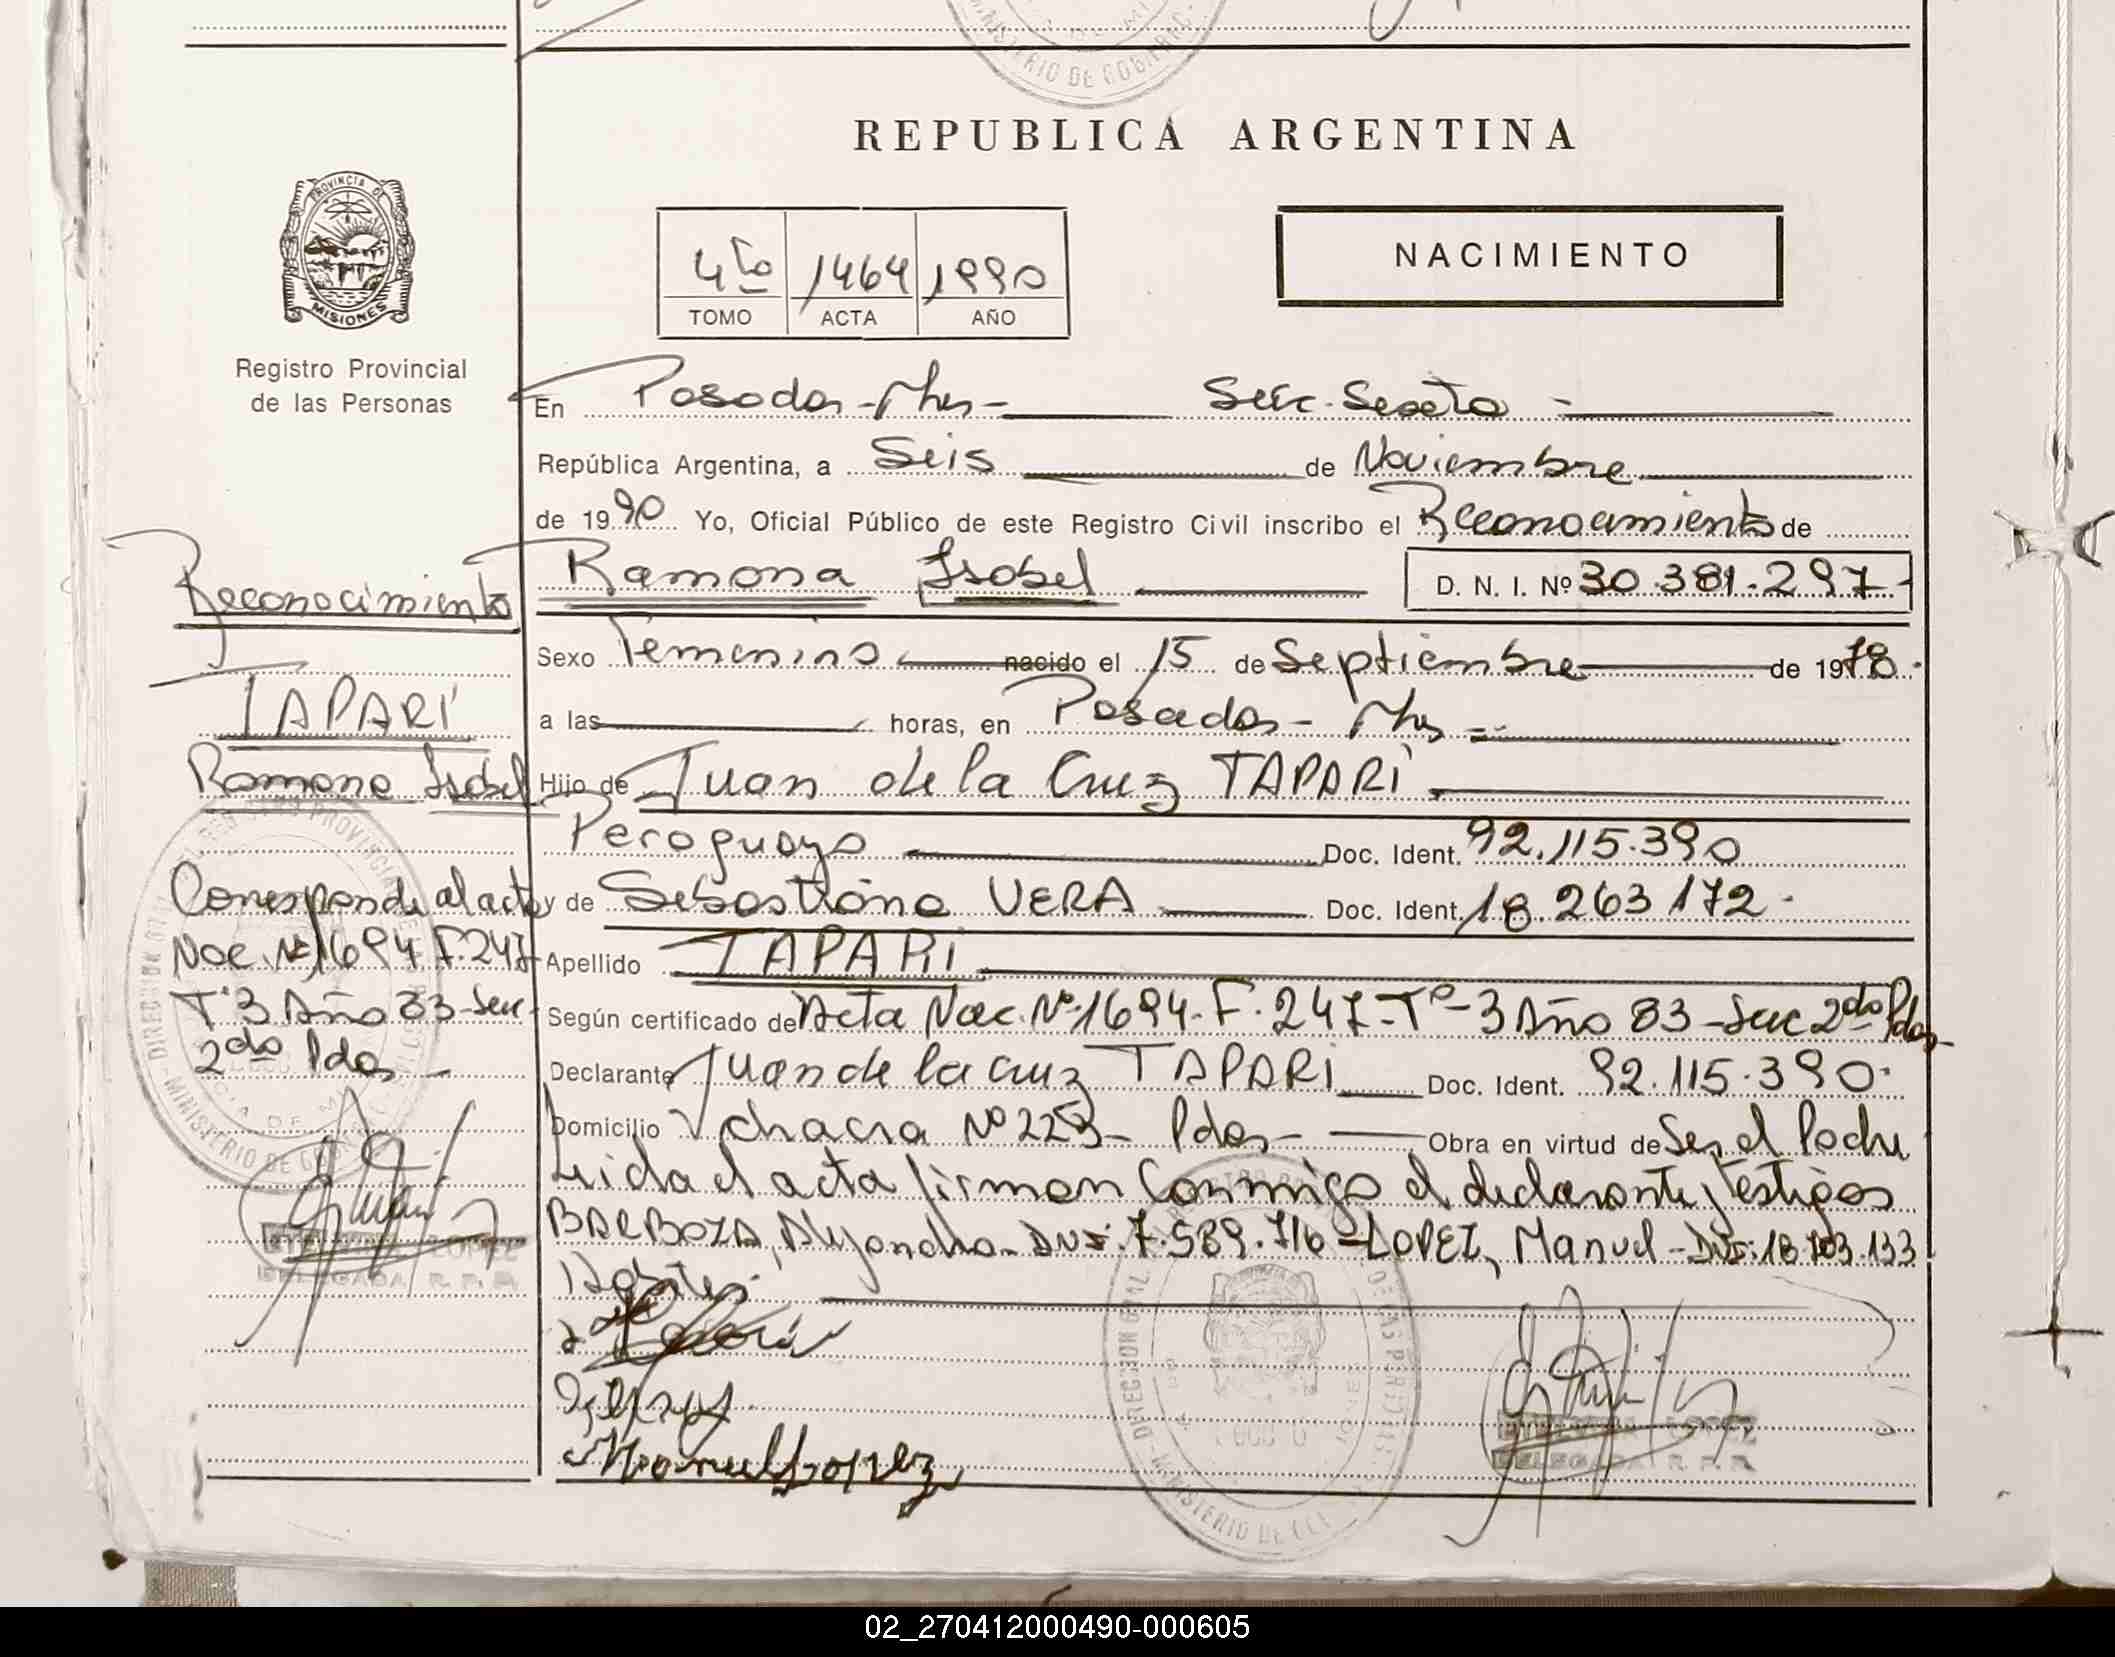 MINISTERIO DE GOBIERNO
REPUBLICA ARGENTINA
PROVINCIA DE
MISIONES
Registro Provincial
de las Personas
4to 1464 1990
TOMO ACTA AÑO
NACIMIENTO
En Posadas - Mnes - Secc. Sexta
República Argentina, a Seis de Noviembre
de 1990 Yo, Oficial Público de este Registro Civil inscribo el Reconocimiento de
Ramona Isabel D. N. I. Nº 30.381.297
Sexo Femenino nacido el 15 de Septiembre de 1978
a las horas, en Posadas - Mnes
Hijo de Juan de la Cruz TAPARI
Paraguayo Doc. Ident. 92.115.390
y de Sebastiana VERA Doc. Ident. 18.263.172
Apellido TAPARI
Según certificado de Acta Nac. Nº 1694 - F. 247 - Tº - 3 Año 83 - Secc 2do Pdas
Declarante Juan de la Cruz TAPARI Doc. Ident. 92.115.390
Domicilio chacra Nº 223 - Pdas - Obra en virtud de Ser el Padre
Leida el acta firman conmigo el declarante y testigos
BARBOZA, Alejandro - DNI: 7.589.716 - LOPEZ, Manuel - DNI: 18.703.133
Manuel Lopez
Reconocimiento
TAPARI
Ramona Isabel
Corresponde al acta
Nac. Nº 1694 F. 247
Tº 3 Año 83 - Secc
2do Pdas
LOPEZ
DELEGADA R. P. P.
LOPEZ
DELEGADA R. P. P.
02_270412000490-000605